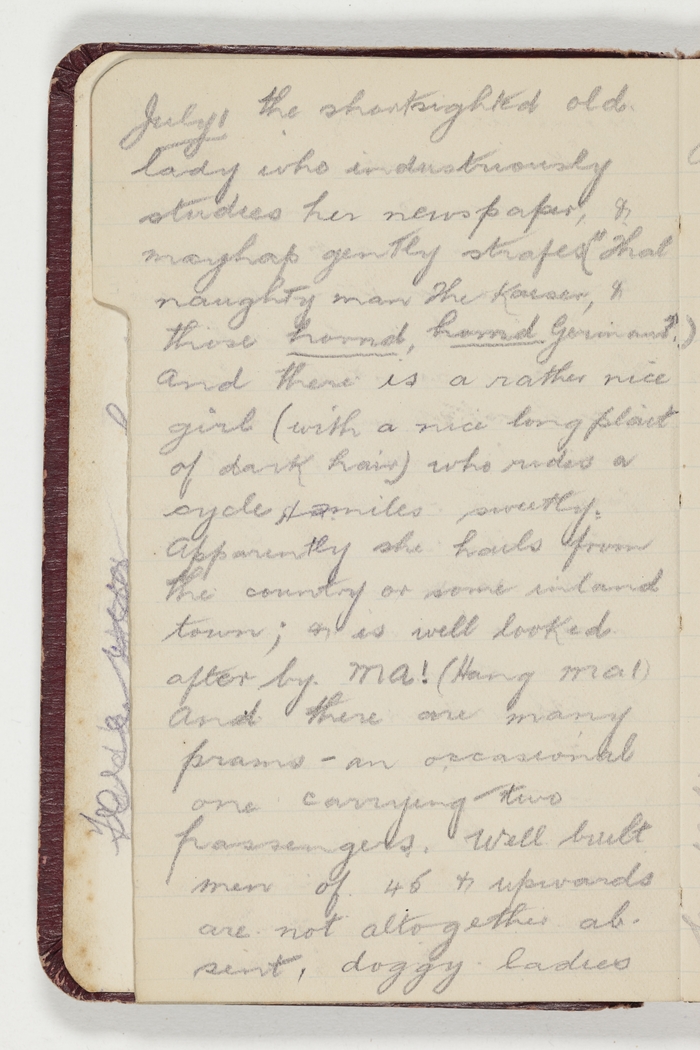 July 1 the shortsighted old
lady who industriously
studies her newspaper, &
mayhap gently strafes "that
naughty man the Kaeser, &
those horrid, horrid Germans".)
And there is a rather nice
girl (with a nice long plait
of dark hair) who rides a
cycle, & smiles sweetly.
Apparently she hails from
the country or some inland
town; & is well looked
after by MA! (Hang Ma!)
And there are many
prams - an occasional
one carrying two
passengers. Well built
men of 45 & upwards
are not altogether ab-
sent, doggy ladies